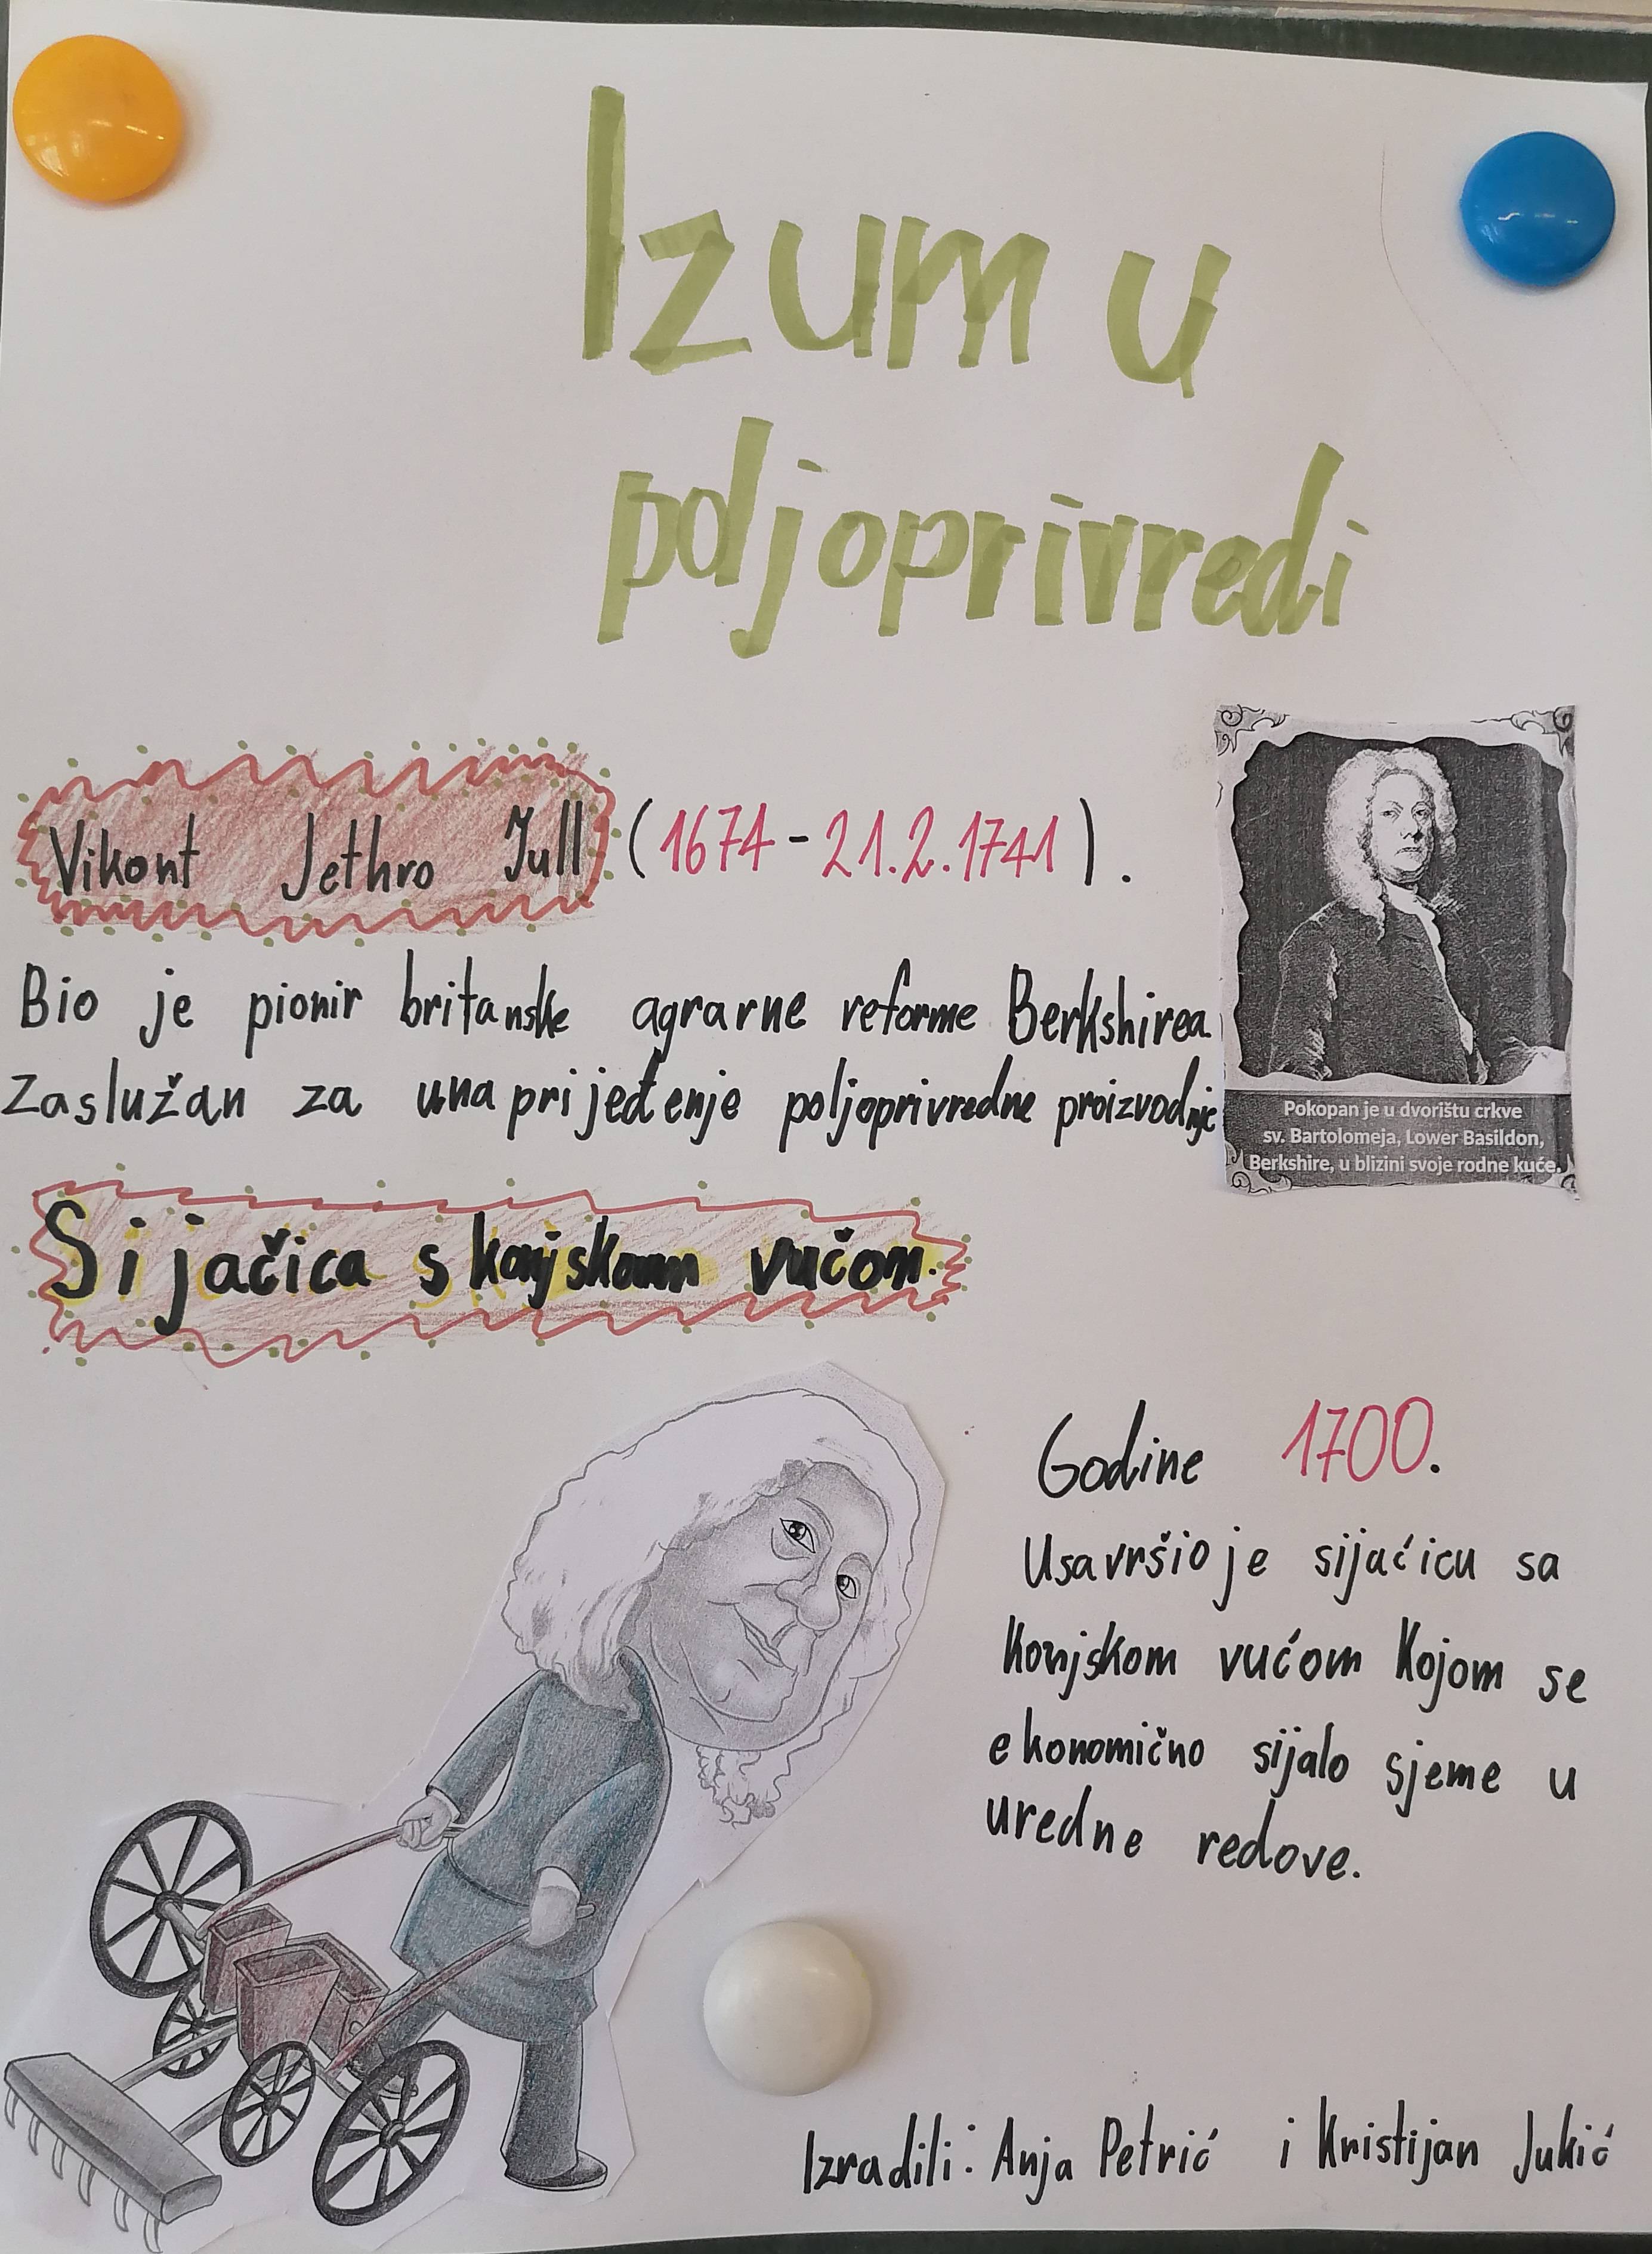 Izum u
poljoprivredi
Vikont Jethro Tull (1674-21.2.1741).
Bio je pionir britanske agrarne reforme Berkshirea
Zaslužan za unaprijeđenje poljoprivredne proizvodnje
Pokopan je u dvorištu crkve
sv. Bartolomeja, Lower Basildon,
Berkshire, u blizini svoje rodne kuće.
Sijačica s konjskom vučom.
Godine 1700.
Usavršio je sijaćicu sa
konjskom vućom kojom se
ekonomično sijalo sjeme u
uredne redove.
Izradili: Anja Petrić i Kristijan Jukić